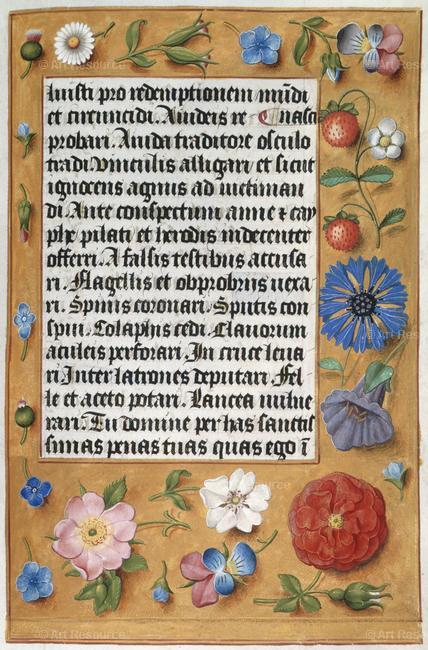 luisti pro redemptionem mūdi
et circuncidi. A iudeis re nasci
probari. A iuda traditore osculo
tradi. vinculis alligari et sicut
ignocens agnus ad uictiman
di. Ante conspectum anne ⁊ cay
phe pilati et herodis indecenter
offerri. A falsis testibus accusa
ri. Flagellis et obprobriis uexa
ri. Spinis coronari. Sputis con
spui. Colaphis cedi. Clauorum
aculeis perforari. In cruce leua
ri. Inter latrones deputari. Fel
le et aceto potari. Lancea uulne
rari. Tu domine per has sanctis
simas penas tuas quas ego ī
© Art Resource
© Art Resource